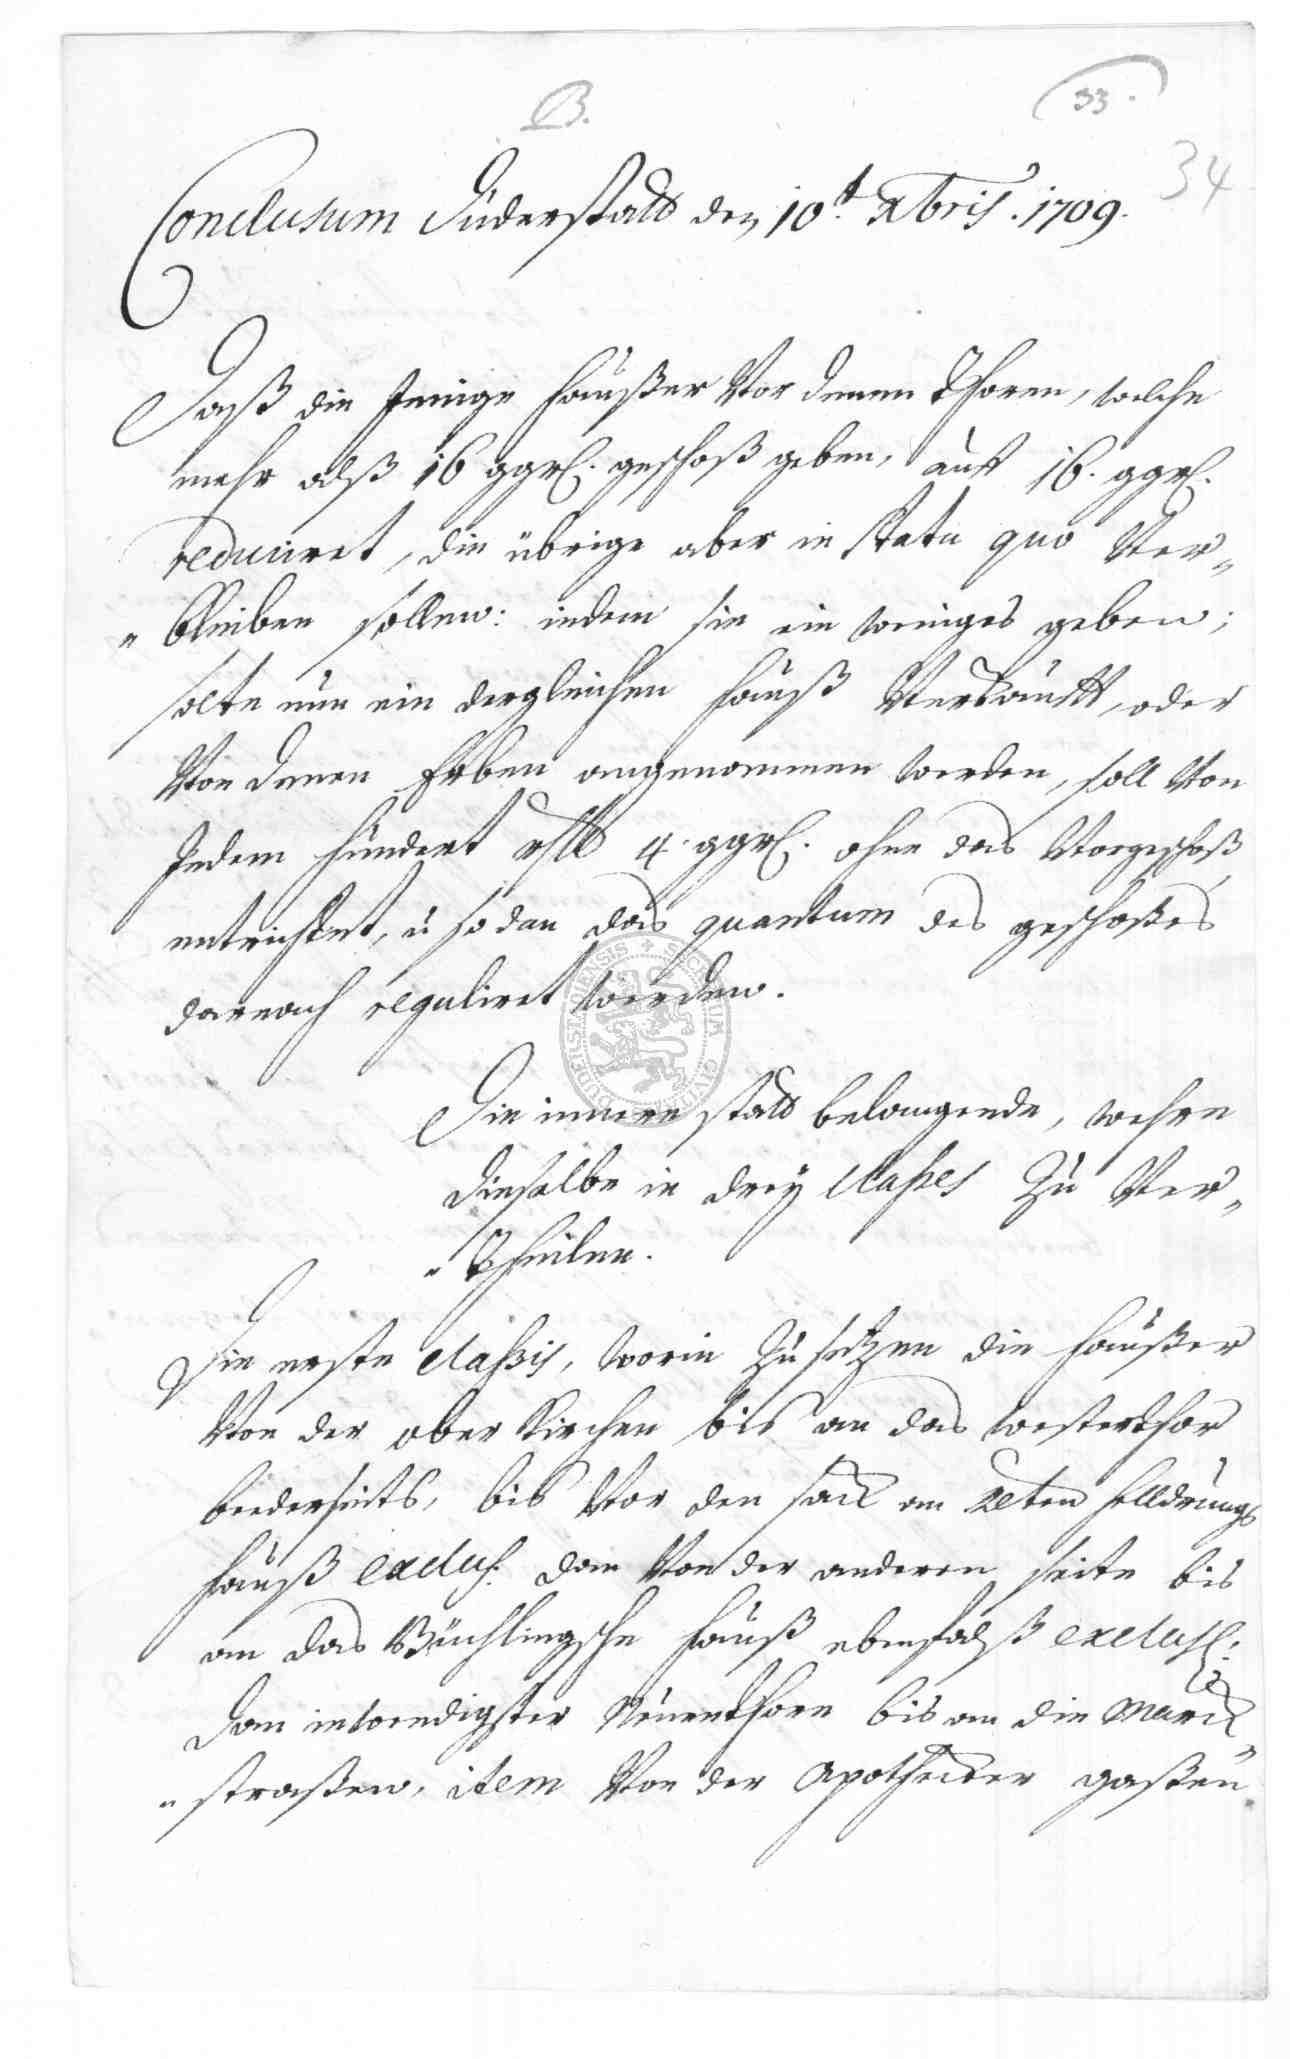 B.
33.
34
Conclusum Duderstadt den 10t. Xbris. 1709.
Daß die Jenige häußer Vor denen Thoren, welche
mehr alß 16 ggrl. geschoß geben, auff 16. ggrl.
reduciret, die übrige aber in statu quo Ver-
bleiben sollen: indem sie ein weniges geben;
solte nun ein dergleichen hauß Verkaufft, oder
Von denen Erben angenommen werden, soll Von
Jedem hundert rthl 4. ggrl. ohne das Vorgeschoß
entrichtet, u so dan das quantum des geschoßes
darnach reguliret werden.
Die innere stadt belangende, wehre
dieselbe in drey classes Zu Ver-
theilen.
Die erste classis, worin Zu setzen die häußer
Von der ober Kirchen bis an das westerthor
beederseits, bis Vor den sack am
hauß exclus. dan Von der anderen seite bis
an das hauß ebenfalß exclusl.
dan inwendigster Neuenthore bis an die Marck-
straßen, item Von der Apothecker gaßen
SECRETUM CIVITATIS DUDERSTADIENSIS